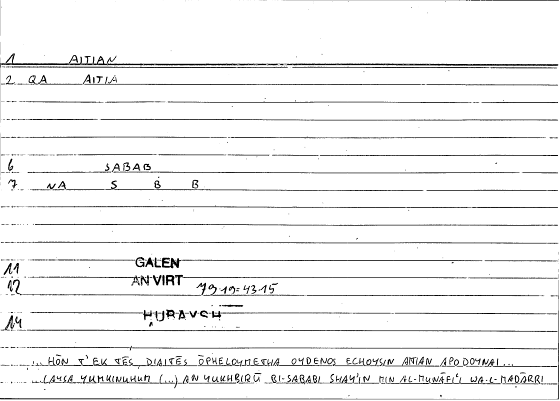 1 AITIAN
2 QA AITIA
6 SABAB
7 NA S B B
11 GALEN
12 AN VIRT 79.19=43.15
14 ḤURAYSH
... HŌN T'EK TĒS DIAITĒS ŌPHELOYMETHA OYDENOS ECHOYSIN AITIAN APODOYNAI...
LAYSA YUMKINUHUM (...) AN YUKHBIRŪ BI-SABABI SHAY'IN MIN AL-MUNĀFI'I WA-L-MAḌĀRRI